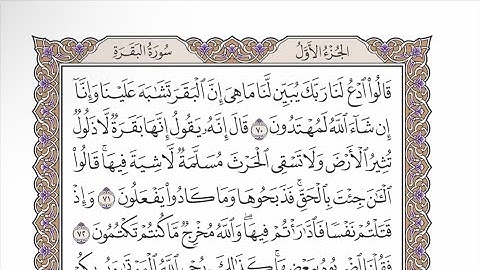 الجُزْءُ الأَوَّلُ
سُورَةُ البَقَرَةِ
قَالُوا۟ ٱدْعُ لَنَا رَبَّكَ يُبَيِّن لَّنَا مَا هِىَ إِنَّ ٱلْبَقَرَ تَشَٰبَهَ عَلَيْنَا وَإِنَّآ
إِن شَآءَ ٱللَّهُ لَمُهْتَدُونَ ٧٠ قَالَ إِنَّهُۥ يَقُولُ إِنَّهَا بَقَرَةٌ لَّا ذَلُولٌ
تُثِيرُ ٱلْأَرْضَ وَلَا تَسْقِى ٱلْحَرْثَ مُسَلَّمَةٌ لَّا شِيَةَ فِيهَا ۚ قَالُوا۟
ٱلْـَٰٔنَ جِئْتَ بِٱلْحَقِّ ۚ فَذَبَحُوهَا وَمَا كَادُوا۟ يَفْعَلُونَ ٧١ وَإِذْ
قَتَلْتُمْ نَفْسًا فَٱدَّٰرَْٰٔتُمْ فِيهَا ۖ وَٱللَّهُ مُخْرِجٌ مَّا كُنتُمْ تَكْتُمُونَ ٧٢